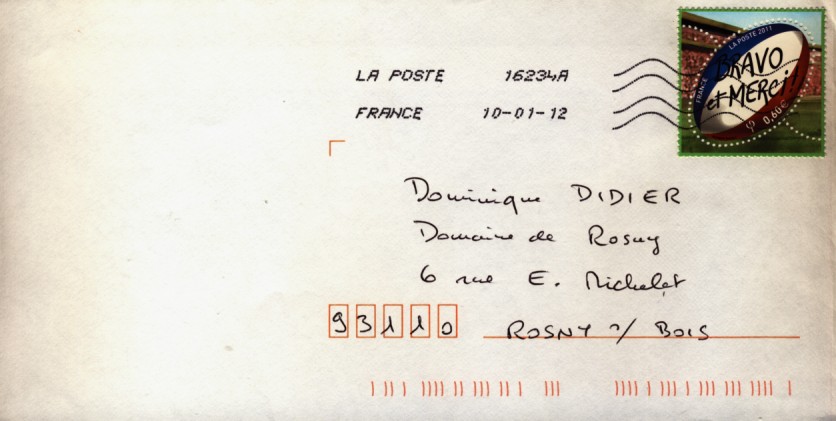 LA POSTE 16234A
FRANCE 10-01-12
LA POSTE 2011
FRANCE
BRAVO
et MERCI!
0,60€
Dominique DIDIER
Domaine de Rosny
6 rue E. Michelet
93110 ROSNY s/ BOIS